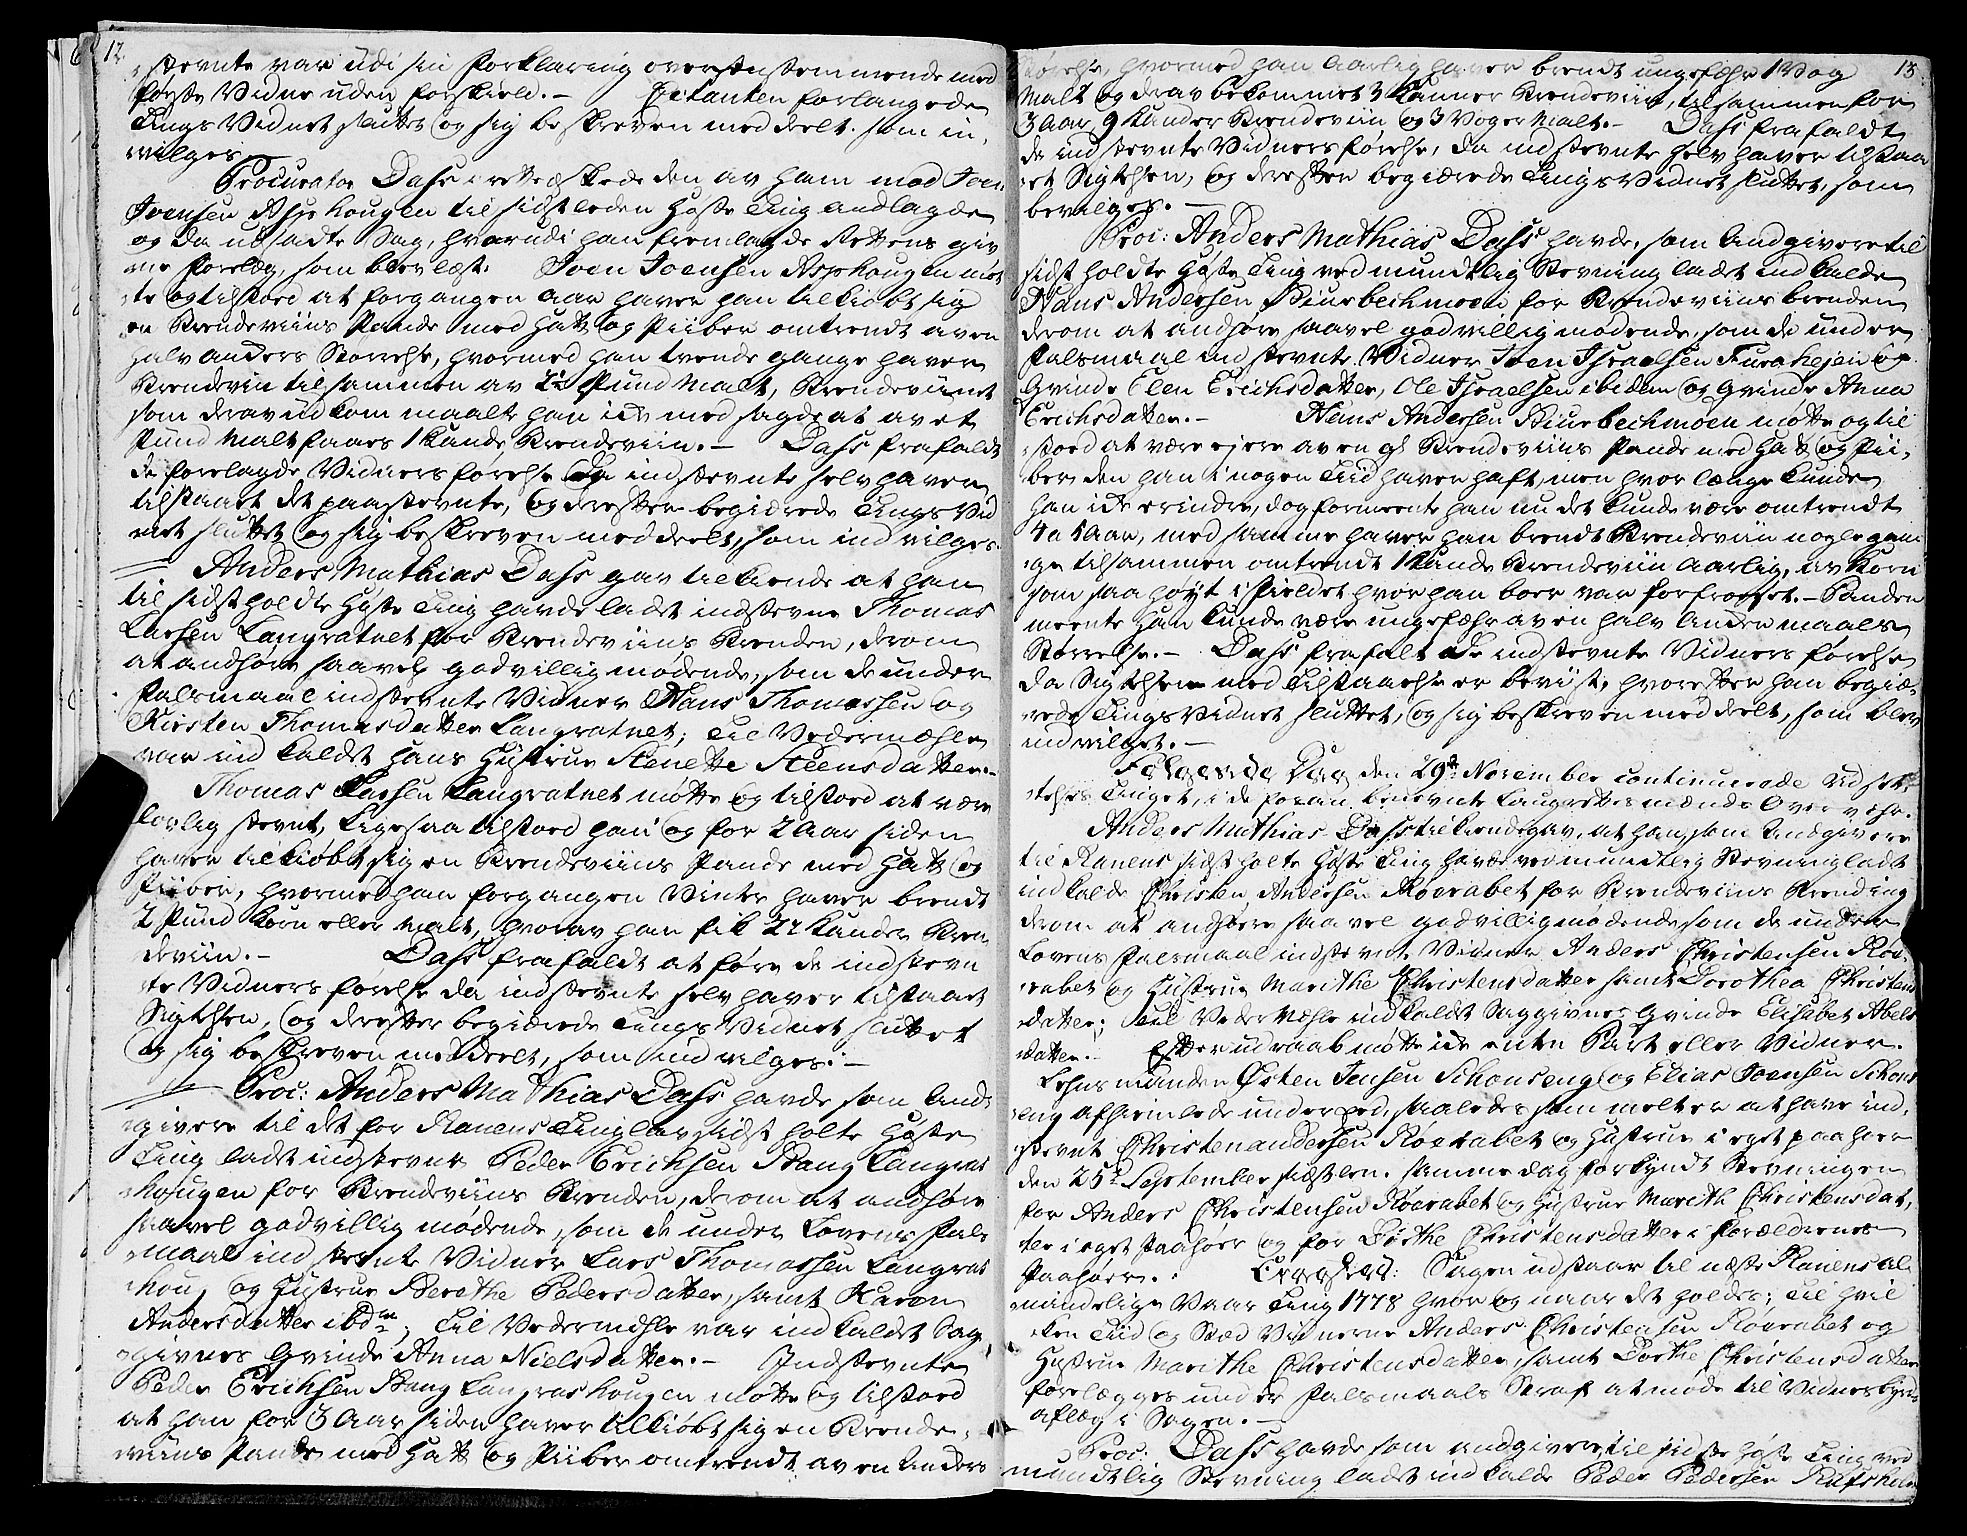 12
stevnte var udi sin forklaring overeenstemmende med
første Vidne uden forskiæl.- Citanten forlangede
Tings Vidnet sluttet og sig beskreven meddeelt. som in„
vilges
Procurator Dass i rette æskede den av ham mod Joen
Joensen Asphougen til sidstleden Høste Ting anlagde
og da udsadte Sag, hvorudi han fremlagde Rettens giv
ne forelæg, som blev læst. Joen Joensen Asphougen møt
te og tilstoed at forgangen aar haver han tilkiøbt sig
en Brendeviins Pande med Hatt og Piiber omtrendt av en
halv anders Størrelse, hvormed han trende gange haver
Brendeviin tilsammen av 2½ Pund Malt, Brendeviinet
som derav udkom maalte han icke med sagde at av et
Pund Malt faaes 1 Kande Brendeviin.- Dass frafaldt
de forelagde Vidners førelse da indstevnte selv haver
tilstaaet det paastevnte, og derefter begiærede Tings Vid
net sluttet og sig beskreven meddeelt, som indvilges.
Anders Mathias Dass gav tilkiende at han
til sidstholdte Høste Ting havde ladet indstevne Thomas
Larsen Langvatnet for Brendeviins Brenden, derom
at andhøre saavel godvillig mødende, som de under
Falsmaal indstevnte Vidner Hans Thomassen og
Kirsten Thomasdatter Langvatnet; Til Vedermæhle
var indkaldet hans Hustrue Stenette Steensdatter.-
Thomas Larsen Langvatnet møtte og tilstoed at være
lovlig stevnt, ligesaa tilstoed han og for 2 Aar siden
haver tilkiøbt sig en Brendeviins Pande med Hatt og
Piiber, hvormed han forgangen Vinter haver brendt
2 Pund Korn eller Malt, hvorav han fik 2½ Kander Bren
deviin.- Dass frafaldt at føre de indstevn
te Vidners førelse da indstevnte selv haver tilstaaet
Sigtelsen, og derefter begiærede Tings Vidnet sluttet
og sig beskreven meddeelt, som indvilges.-
Proc: Anders Mathias Dass havde som And„
givere til det for Ranens Tinglav sidst holte Høste
Ting ladet indstevne Peder Erichsen Stang Langras
hougen for Brendeviins Brenden, derom at andhøre
saavel godvillig mødende, som de under Lovens Fals
maal indstevnte Vidner Lars Thomassen Langras
houg og Hustrue Berethe Pedersdatter, samt Karen
Andersdatter ibdm; Til Vedermæhle var indkaldet Sag
givnes Qvinde Anna Nielsdatter.- Indstevnte
Peder Erichsen Stang Langrashougen møtte og tilstoed
at han for 3 Aar siden haver tilkiøbt sig en Brende„
viins Pande med Hatt og Piiber omtrendt av en Anders
13
Størrelse, hvormed han Aarlig haver brendt ungefæhr 1 Vog
Malt og derav bekommet 3 Kanner Brendeviin, tilsammen for
3 Aar 9 Kander Brendeviin og 3 Voger Malt.- Dass frafaldt
de indstevnte Vidners førelse, da indstevnte selv haver tilstaa
et Sigtelsen, og derefter begiærede Tings Vidnet sluttet, som
bevilges.-
Proc: Anders Mathias Dass havde, som Andgivere til
sidst holdte Høste Ting ved mundtlig Stevning ladet indkalde
Hans Andersen Biurbechmoen for Brendeviins brenden
derom at andhøre saavel godvillig mødende, som de under
Falsmaal indstevnte Vidner Iver Israelsen Furuhejen og
Qvinde Elen Erichsdatter, Ole Israelsen ibidem og Qvinde Anna
Erichsdatter.- Hans Andersen Biurbechmoen møtte og til
stoed at være ejere av en gl. Brendeviins Pande med Hatt og Pii„
ber den han i nogen Tiid haver haft, men hvor længe kunde
han icke erindre, dog formeente han nu det kunde være omtrendt
4 a 5 Aar, med samme haver han brendt Brendeviin nogle gan
ge tilsammen omtrendt 1 Kande Brendeviin Aarlig, av Korn
som saa høyt i Fieldet hvor han boer var forfrosset.- Panden
meente han kunde være ungefæhr av en halv Anden maals
Størrelse.- Dass frafalt de indstevnte Vidners førelse
da Sigtelsen med Tilstaaelse er bevist, hvorefter han begiæ„
rede Tings Vidnet sluttet, og sig beskreven meddeelt, som blev
indvilget.-
Følgende Dag den 29de November continuerede Udsæt„
telses Tinget, i de foran benevnte Laugrettesmænds Overvær.
Anders Mathias Dass tilkiendegav, at han som Andgivere
til Ranens sidst holte Høste Ting havde ved mundtlig Stevning ladt
indkalde Christen Andersen Røevabet for Brendeviins Brending
derom at andhøre saavel godvillig mødende som de under
Lovens Falsmaal indstevnte Vidner Anders Christensen Røe„
vabet og Hustrue Marithe Christensdatter samt Dorothea Christens
datter; Til Vedermæhle indkaldt Saggivnes Qvinde Elisabet Abels
datter.- Efter udraab møtte icke enten Part eller Vidner.
Lehnsmanden Østen Jensen Schonseng og Elias Joensen Schons
eng afhiemlede under Eed, saaledes som melt er at have ind„
stevnt Christen Andersen Røevabet og Hustrue i eget paahøer
den 25de September sidstleden. samme dag forkyndt Stevningen
for Anders Christensen Røevabet og Hustrue Marith Christensdat„
ter i eget Paahøer og for Dorthe Christensdatter i forældrenes
Paahøer. Eragtet: Sagen udstaar til næste Ranens al„
mindelige Vaar Ting 1778 hvor og naar det holdes; Til hvil
ken Tiid og Sted Vidnerne Anders Christensen Røevabet og
Hustrue Marithe Christensdatter, samt Dorthe Christensdatter
forelægges under Falsmaals Straf at møde til Vidnesbyrds
aflæg i Sagen.-
Proc: Dass havde som andgivere til sidste Høste Ting ved
mundtlig Stevning ladet indkalde Peder Pedersen